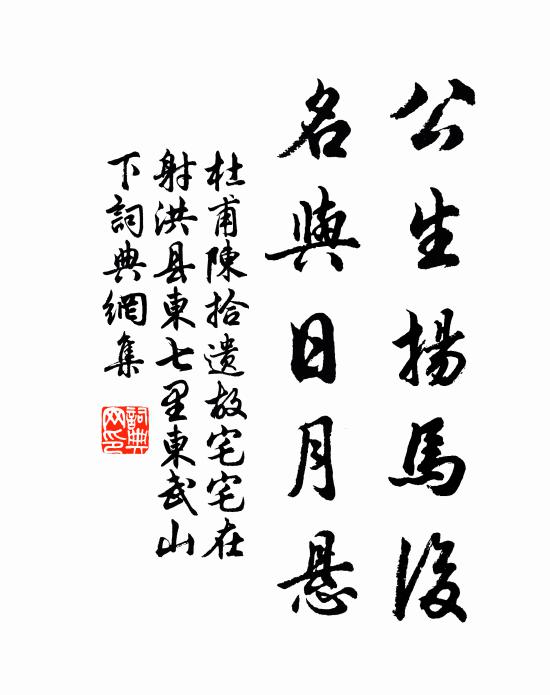 公生揚馬後
名與日月懸
杜甫陳拾遺故宅宅在
射洪县東七里東武山
下詞典網集
詞典
网印